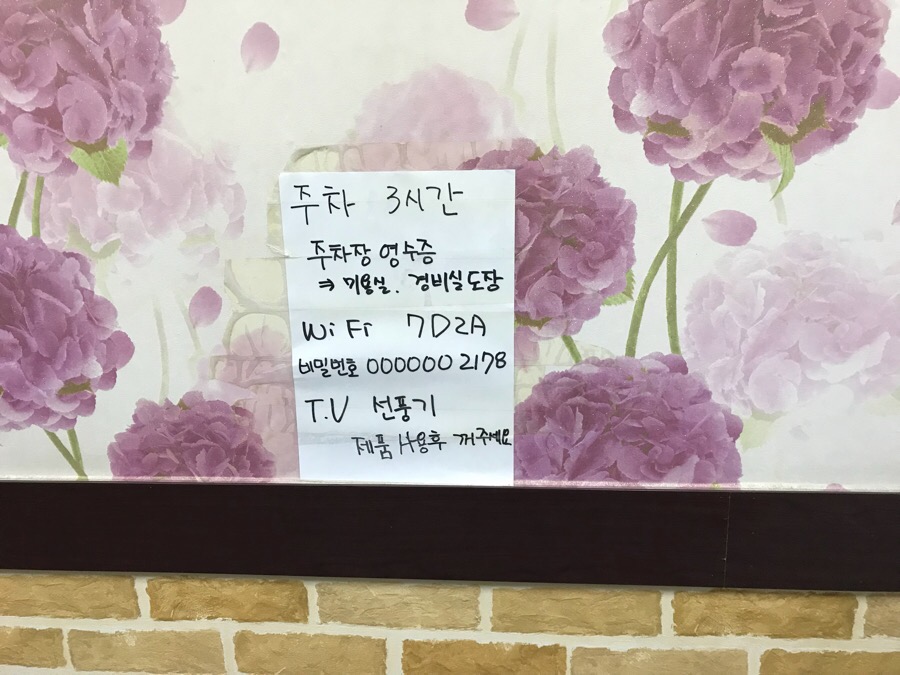 주차 3시간
주차장 영수증
⇒ 미용실. 경비실 도장
WiFi 7D2A
비밀번호 0000002178
T.V 선풍기
제품 사용후 꺼주세요